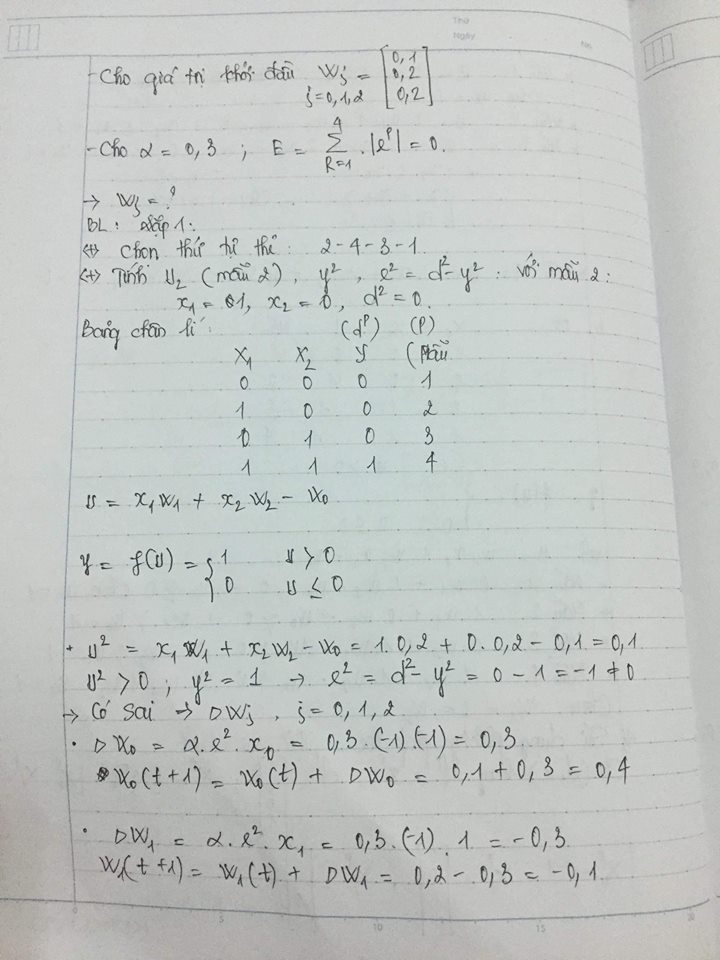 Thứ
Ngày
No.
- Cho giá trị khởi đầu Wj = [0,1
j=0,1,2 0,2
0,2]
- Cho α = 0,3 ; E = 4 Σ R=1 .|eᵖ| = 0.
→ Wj = ?
BL: Lặp 1:
(+) Chọn thứ tự thi: 2-4-3-1
(+) Tính U₂ (mẫu 2), y², e² = d² - y² : với mẫu 2:
x₁ = 1, x₂ = 0, d² = 0.
Bảng chân lí: (dᵖ) (P)
X₁ X₂ y (Mẫu
0 0 0 1
1 0 0 2
0 1 0 3
1 1 1 4
U = x₁W₁ + x₂W₂ - W₀
y = f(U) = { 1 U > 0
0 U ≤ 0
+ U² = x₁W₁ + x₂W₂ - W₀ = 1.0,2 + 0.0,2 - 0,1 = 0,1
U² > 0 ; y² = 1 → e² = d² - y² = 0 - 1 = -1 ≠ 0
→ Có sai → DWj , j = 0,1,2
. DW₀ = α.e².x₀ = 0,3.(-1).(-1) = 0,3
W₀(t+1) = W₀(t) + DW₀ = 0,1 + 0,3 = 0,4
. DW₁ = α.e².x₁ = 0,3.(-1).1 = -0,3
W₁(t+1) = W₁(t) + DW₁ = 0,2 - 0,3 = -0,1
0 10 15 20